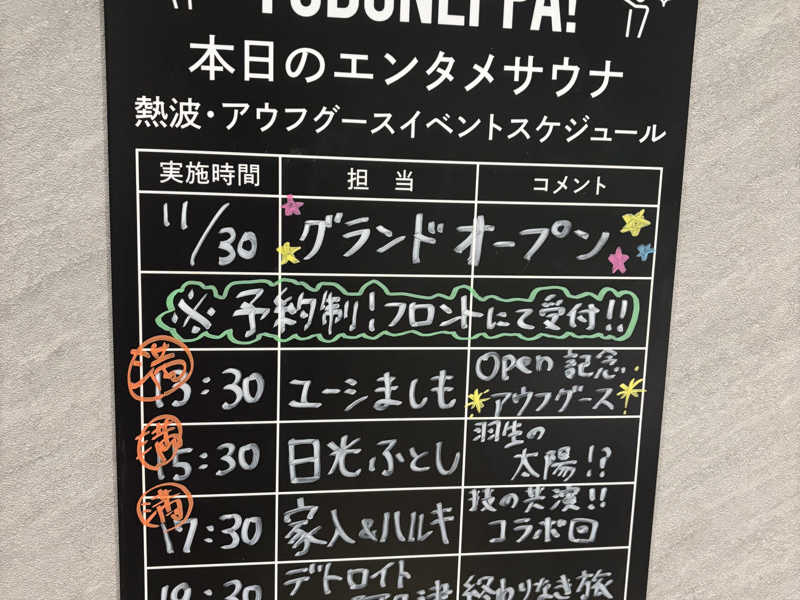 YUDONEPPA!
本日のエンタメサウナ
熱波・アウフグースイベントスケジュール
実施時間 担当 コメント
11/30 グランドオープン
※予約制!フロントにて受付!!
満 13:30 ユーシましも Open記念 アウフグース
満 15:30 日光ふとし 羽生の太陽!?
満 17:30 家入&ハルキ 技の共演!! コラボ回
19:30 デトロイト 終わりなき旅